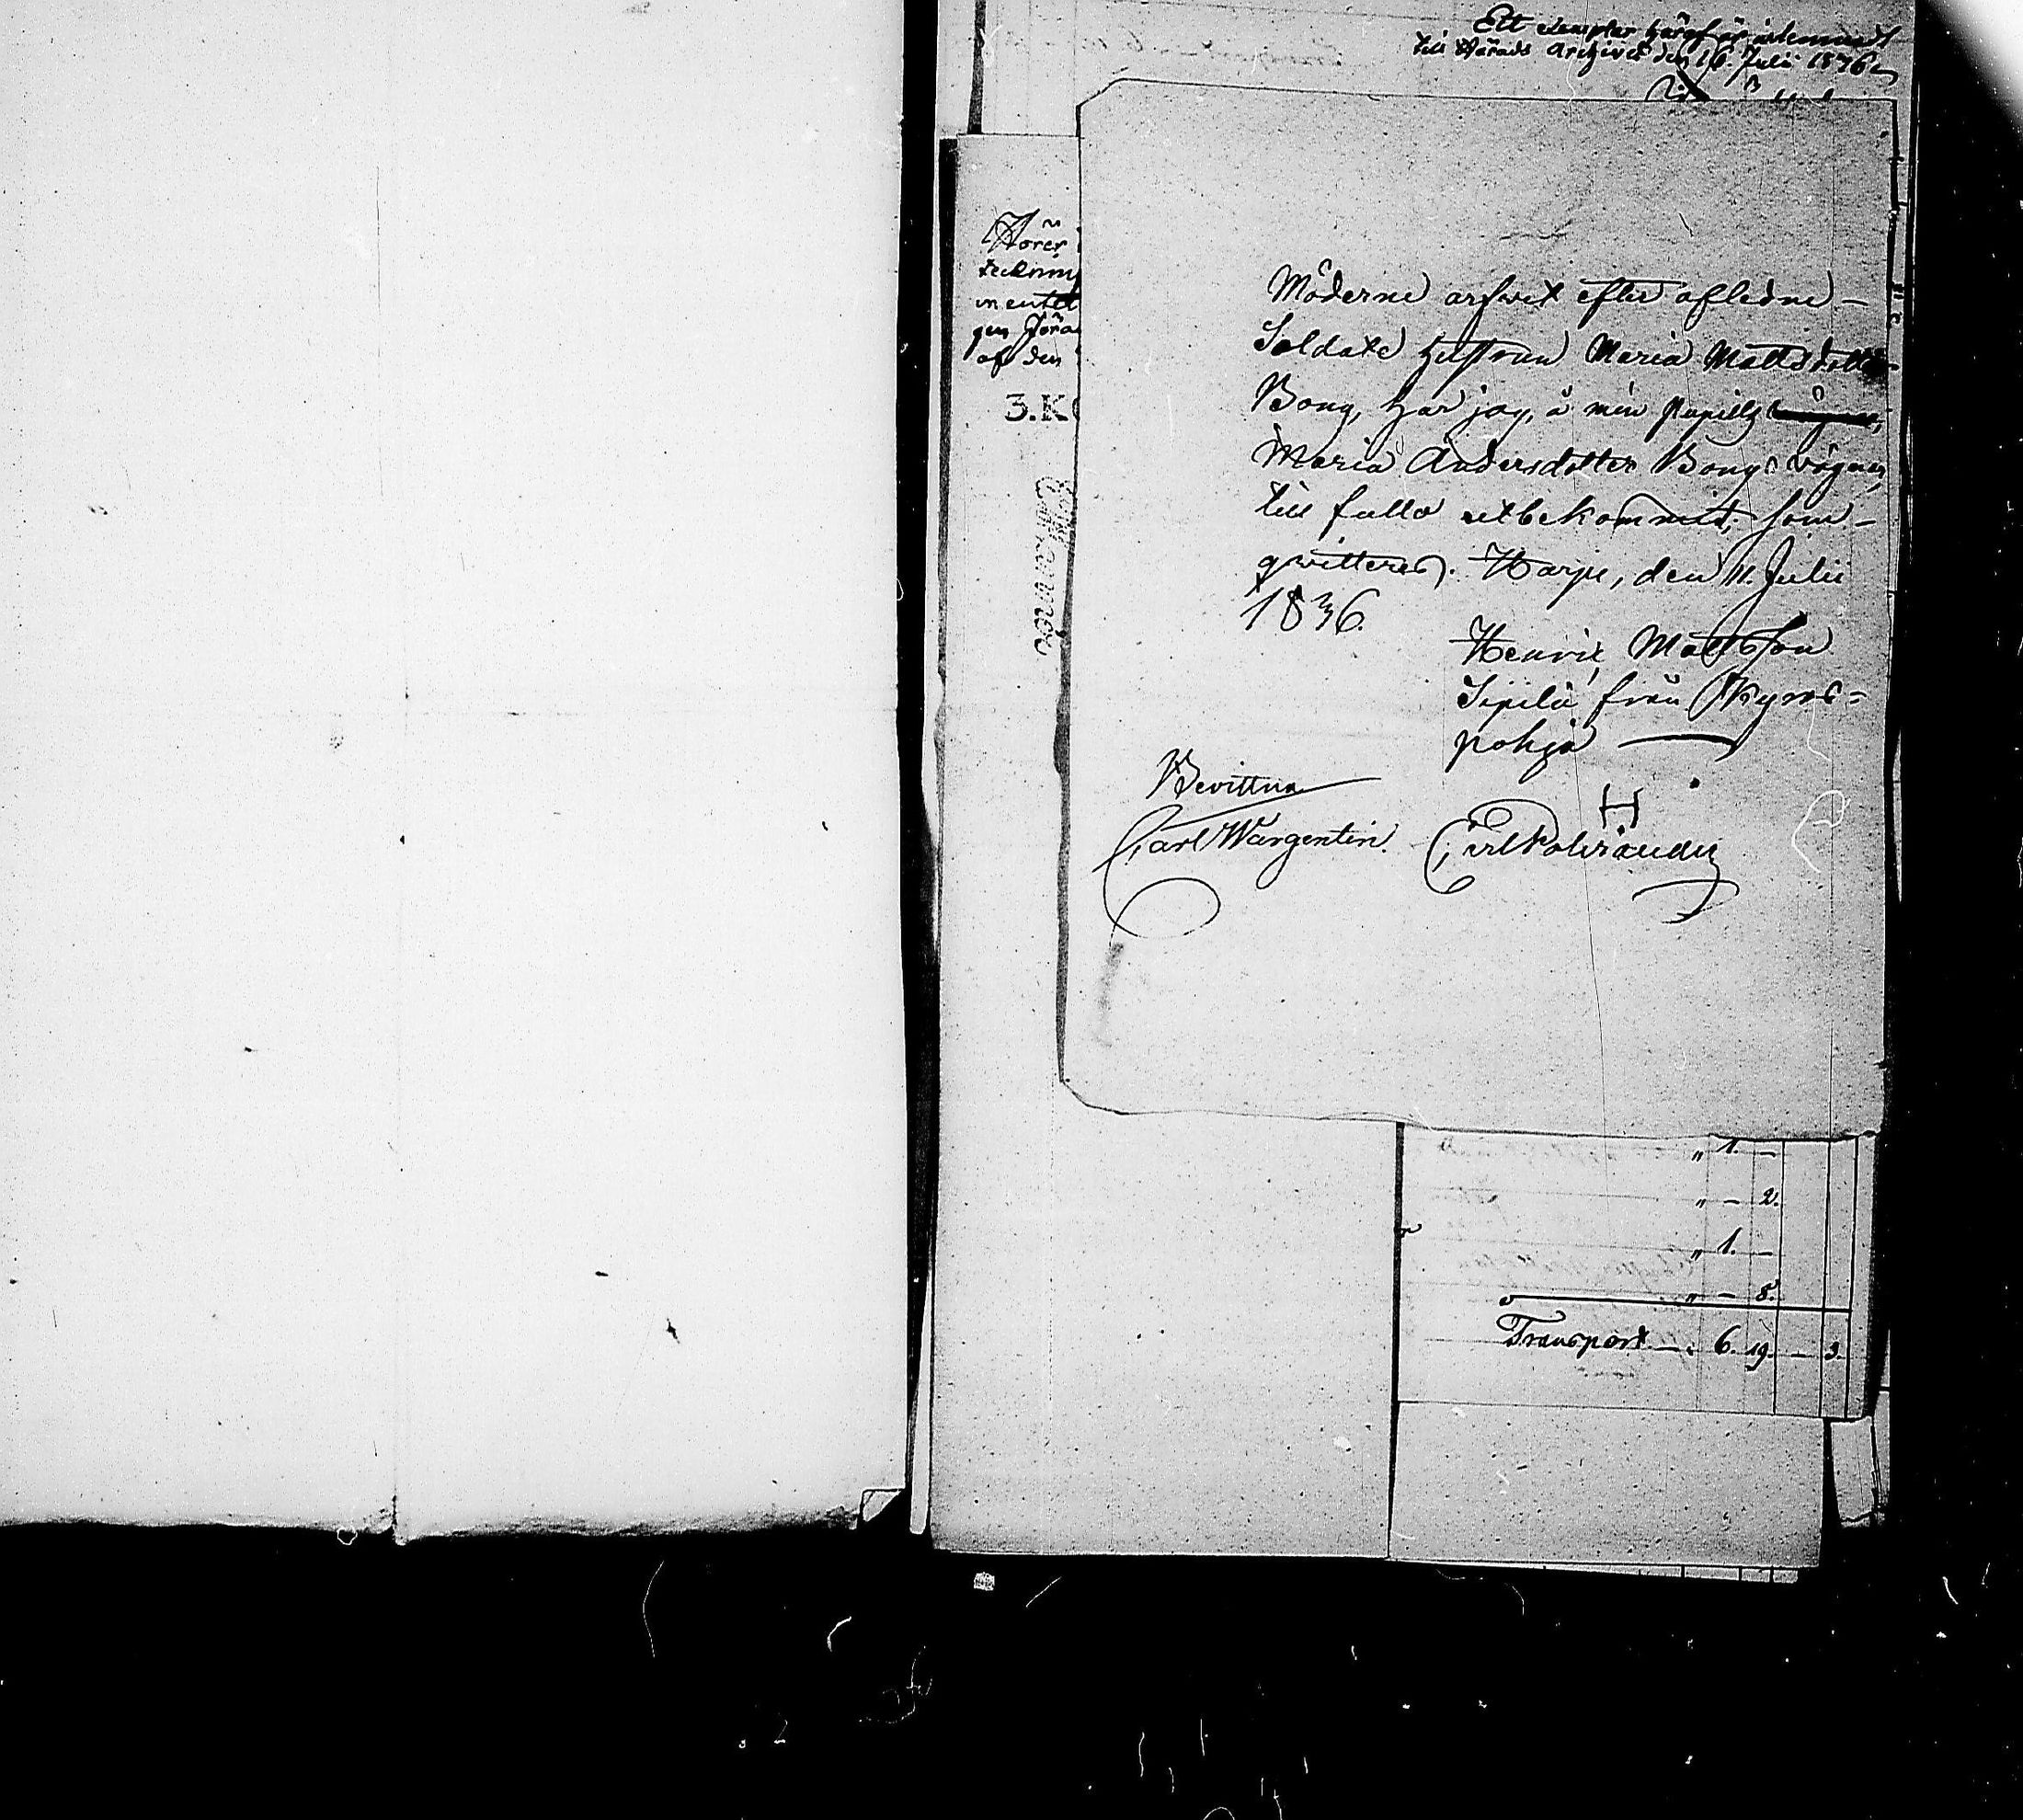 Ett exemplar häraf är inlemnadt
till Härads Archivet den 16 Julii 1836
Hörer
teckning
mentet
gen Föra
af den
3.K
Möderne arfvet efter aflidne
Soldats hustrun Maria Mattsdotter
Bong, har jag, å min Pupills
Maria Andersdotter Bongs vägnar,
till fullo utbekommit, som
qvitteres. Harju, den 11. Julii
1836.
Henric Mattsson
Sipilä från Kyrös-
pohja
Bevittna
H
Carl Wargentin.
" 1. —
" — 2.
" 1. —
" — 8.
Transport — 6. 19. — 3.